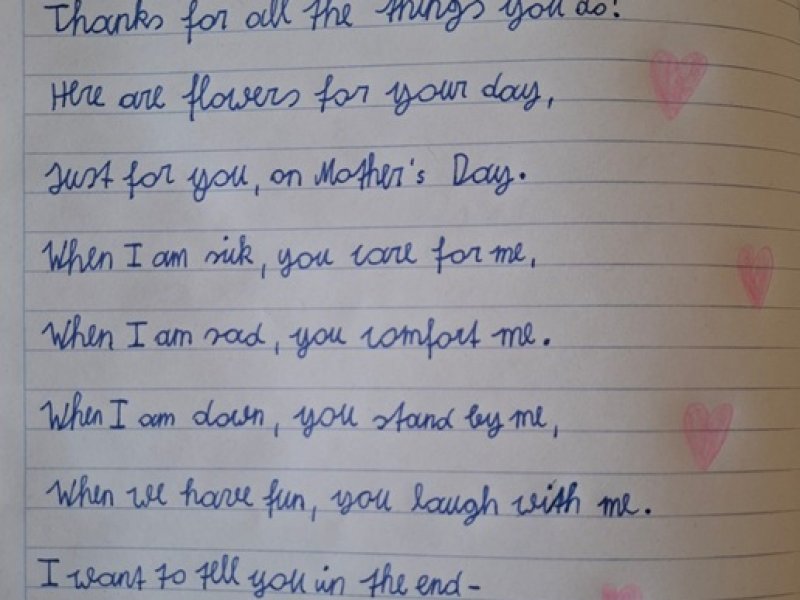 Thanks for all the things you do!
Here are flowers for your day,
Just for you, on Mother's Day.
When I am sick, you care for me,
When I am sad, you comfort me.
When I am down, you stand by me,
When we have fun, you laugh with me.
I want to tell you in the end-